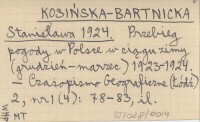 KOSIŃSKA-BARTNICKA
Stanisława 1924. Przebieg
pogody w Polsce w ciągu zimy
(grudzień-marzec) 1923-1924.
Czasopismo Geograficzne (Łódź)
2, nr 1 (4): 78-83, il.
WMP
MT